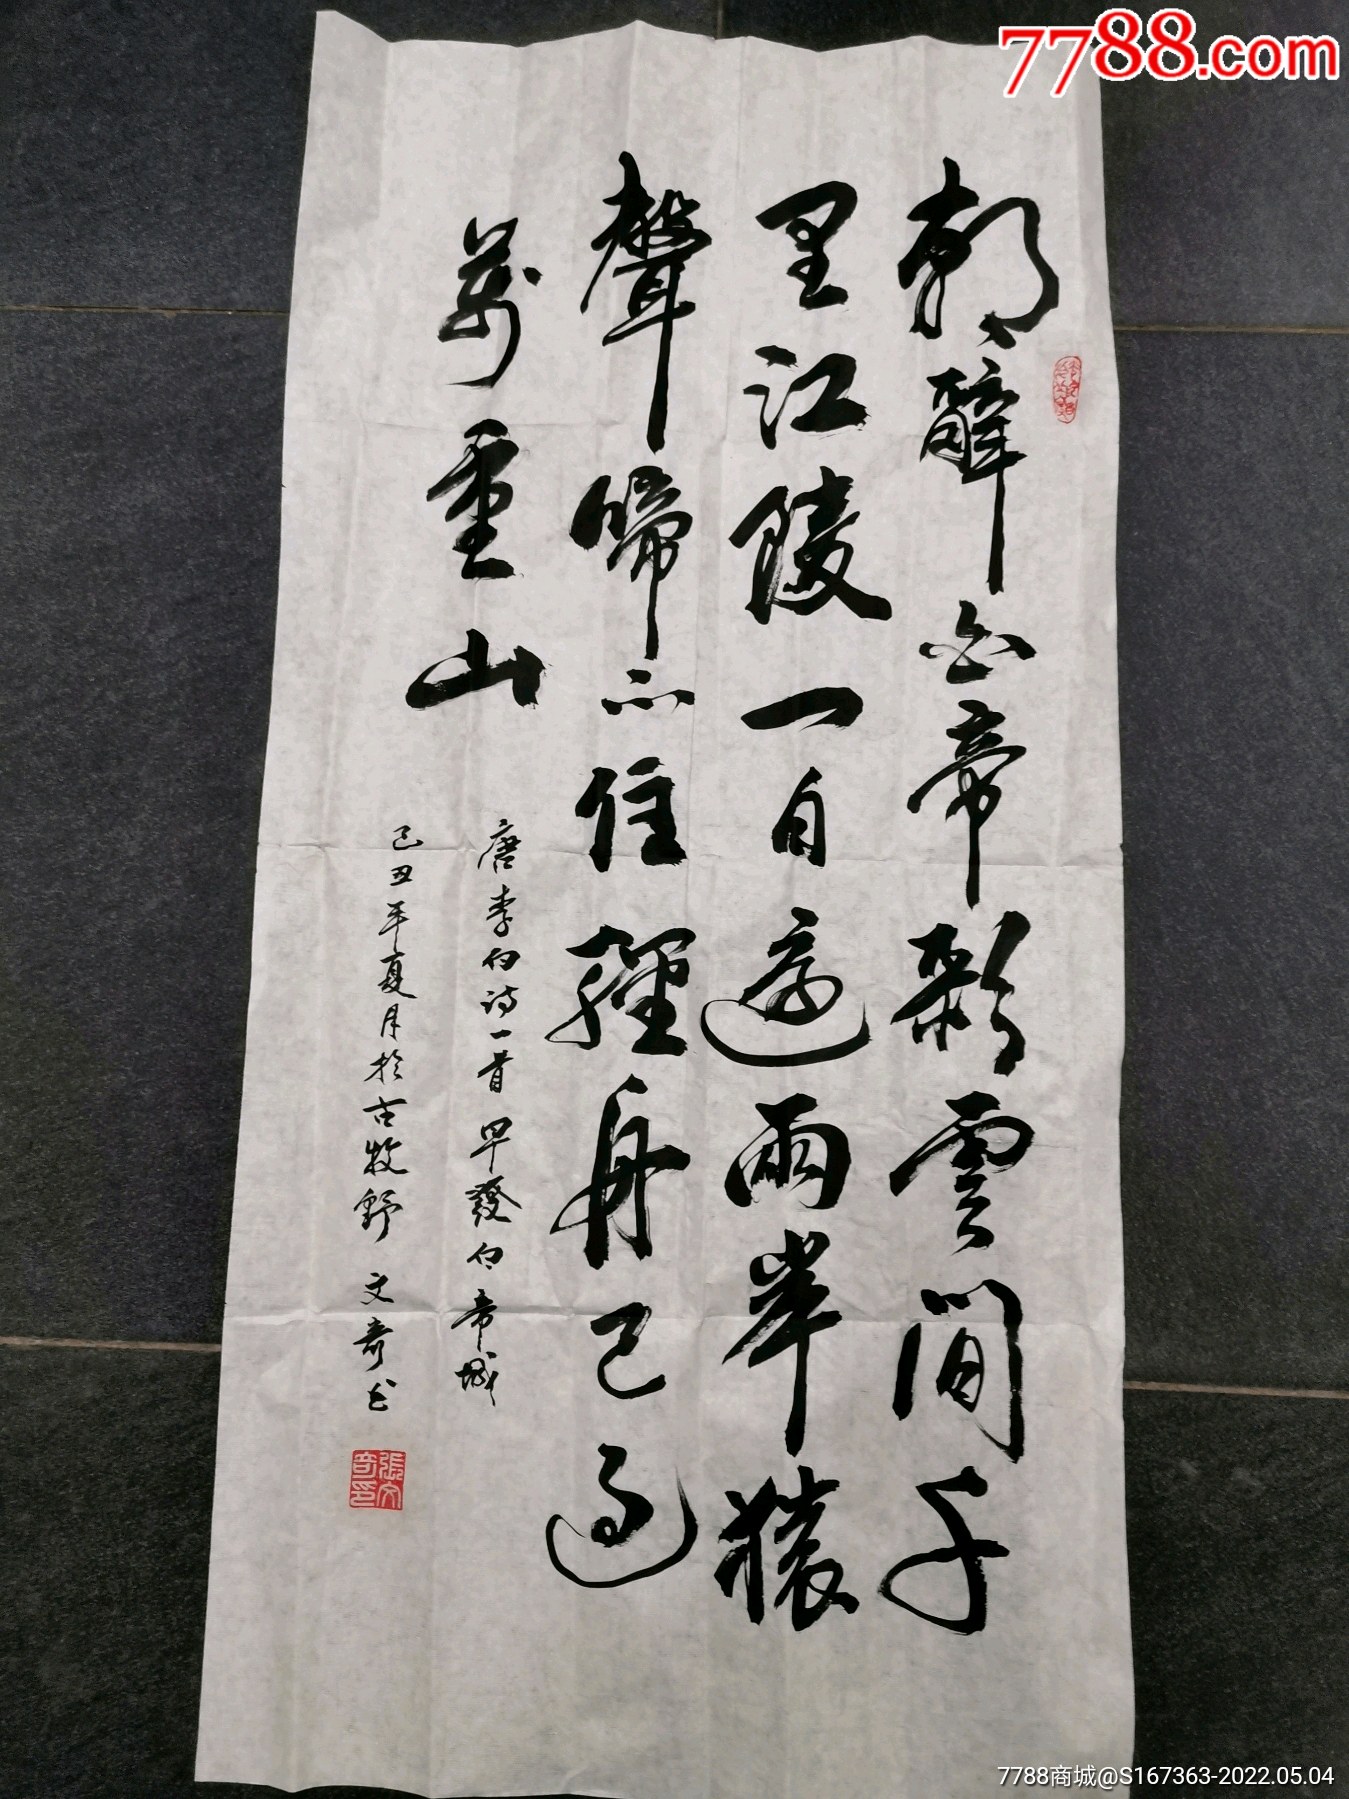 7788.com
朝辭白帝彩雲間千
里江陵一日還兩岸猿
聲啼不住輕舟已過
萬重山
唐李白诗一首早發白帝城
己丑年夏月於古牧野 文奇书
張文奇印
7788商城@S167363-2022.05.04